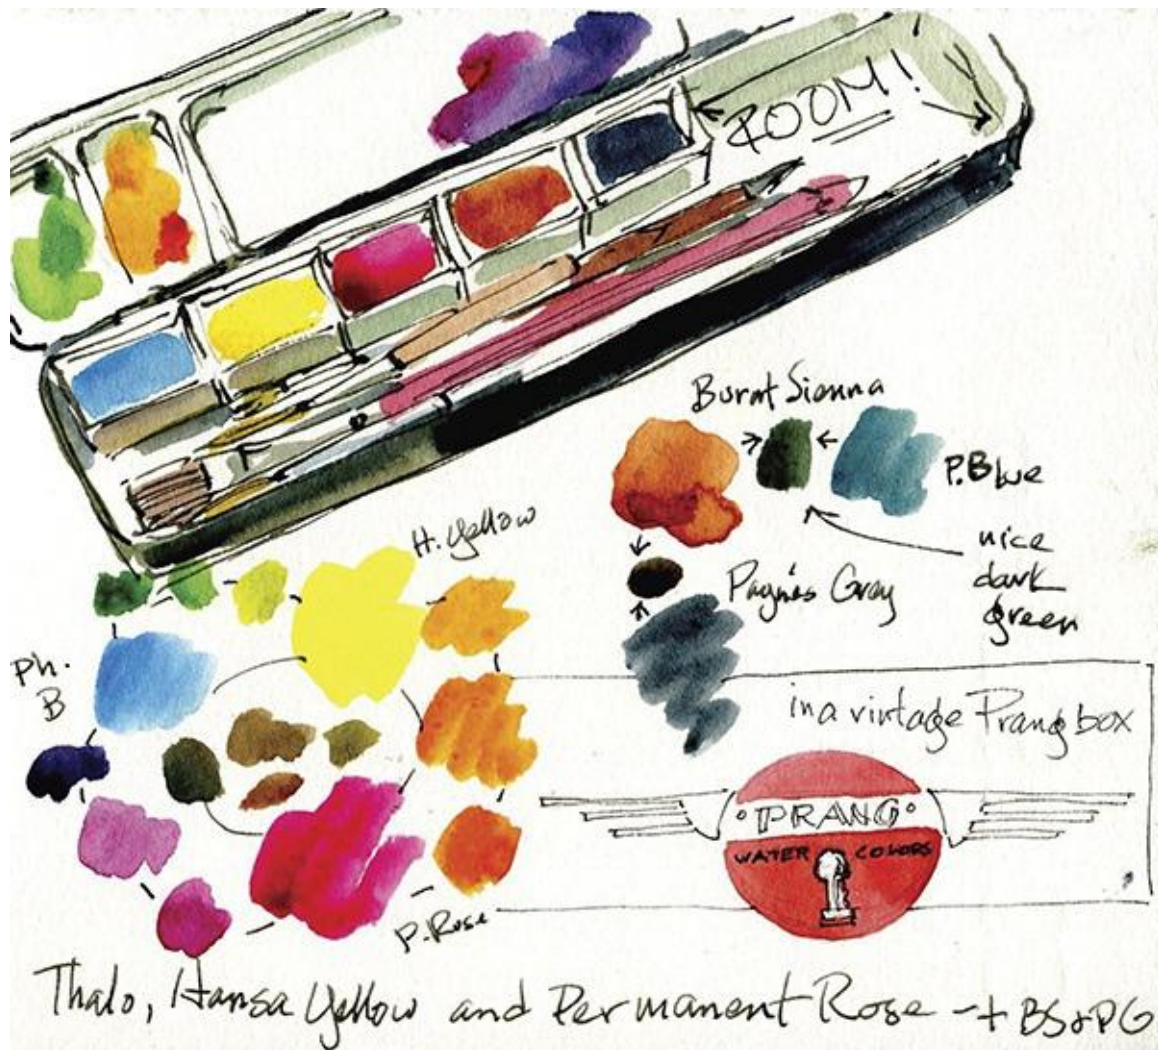 ROOM!
Burnt Sienna
P. Blue
nice
dark
green
H. Yellow
Payne's Gray
Ph.
B
in a vintage Prang box
PRANG
WATER COLORS
1
P. Rose
Thalo, Hansa Yellow and Permanent Rose - + BS & PG